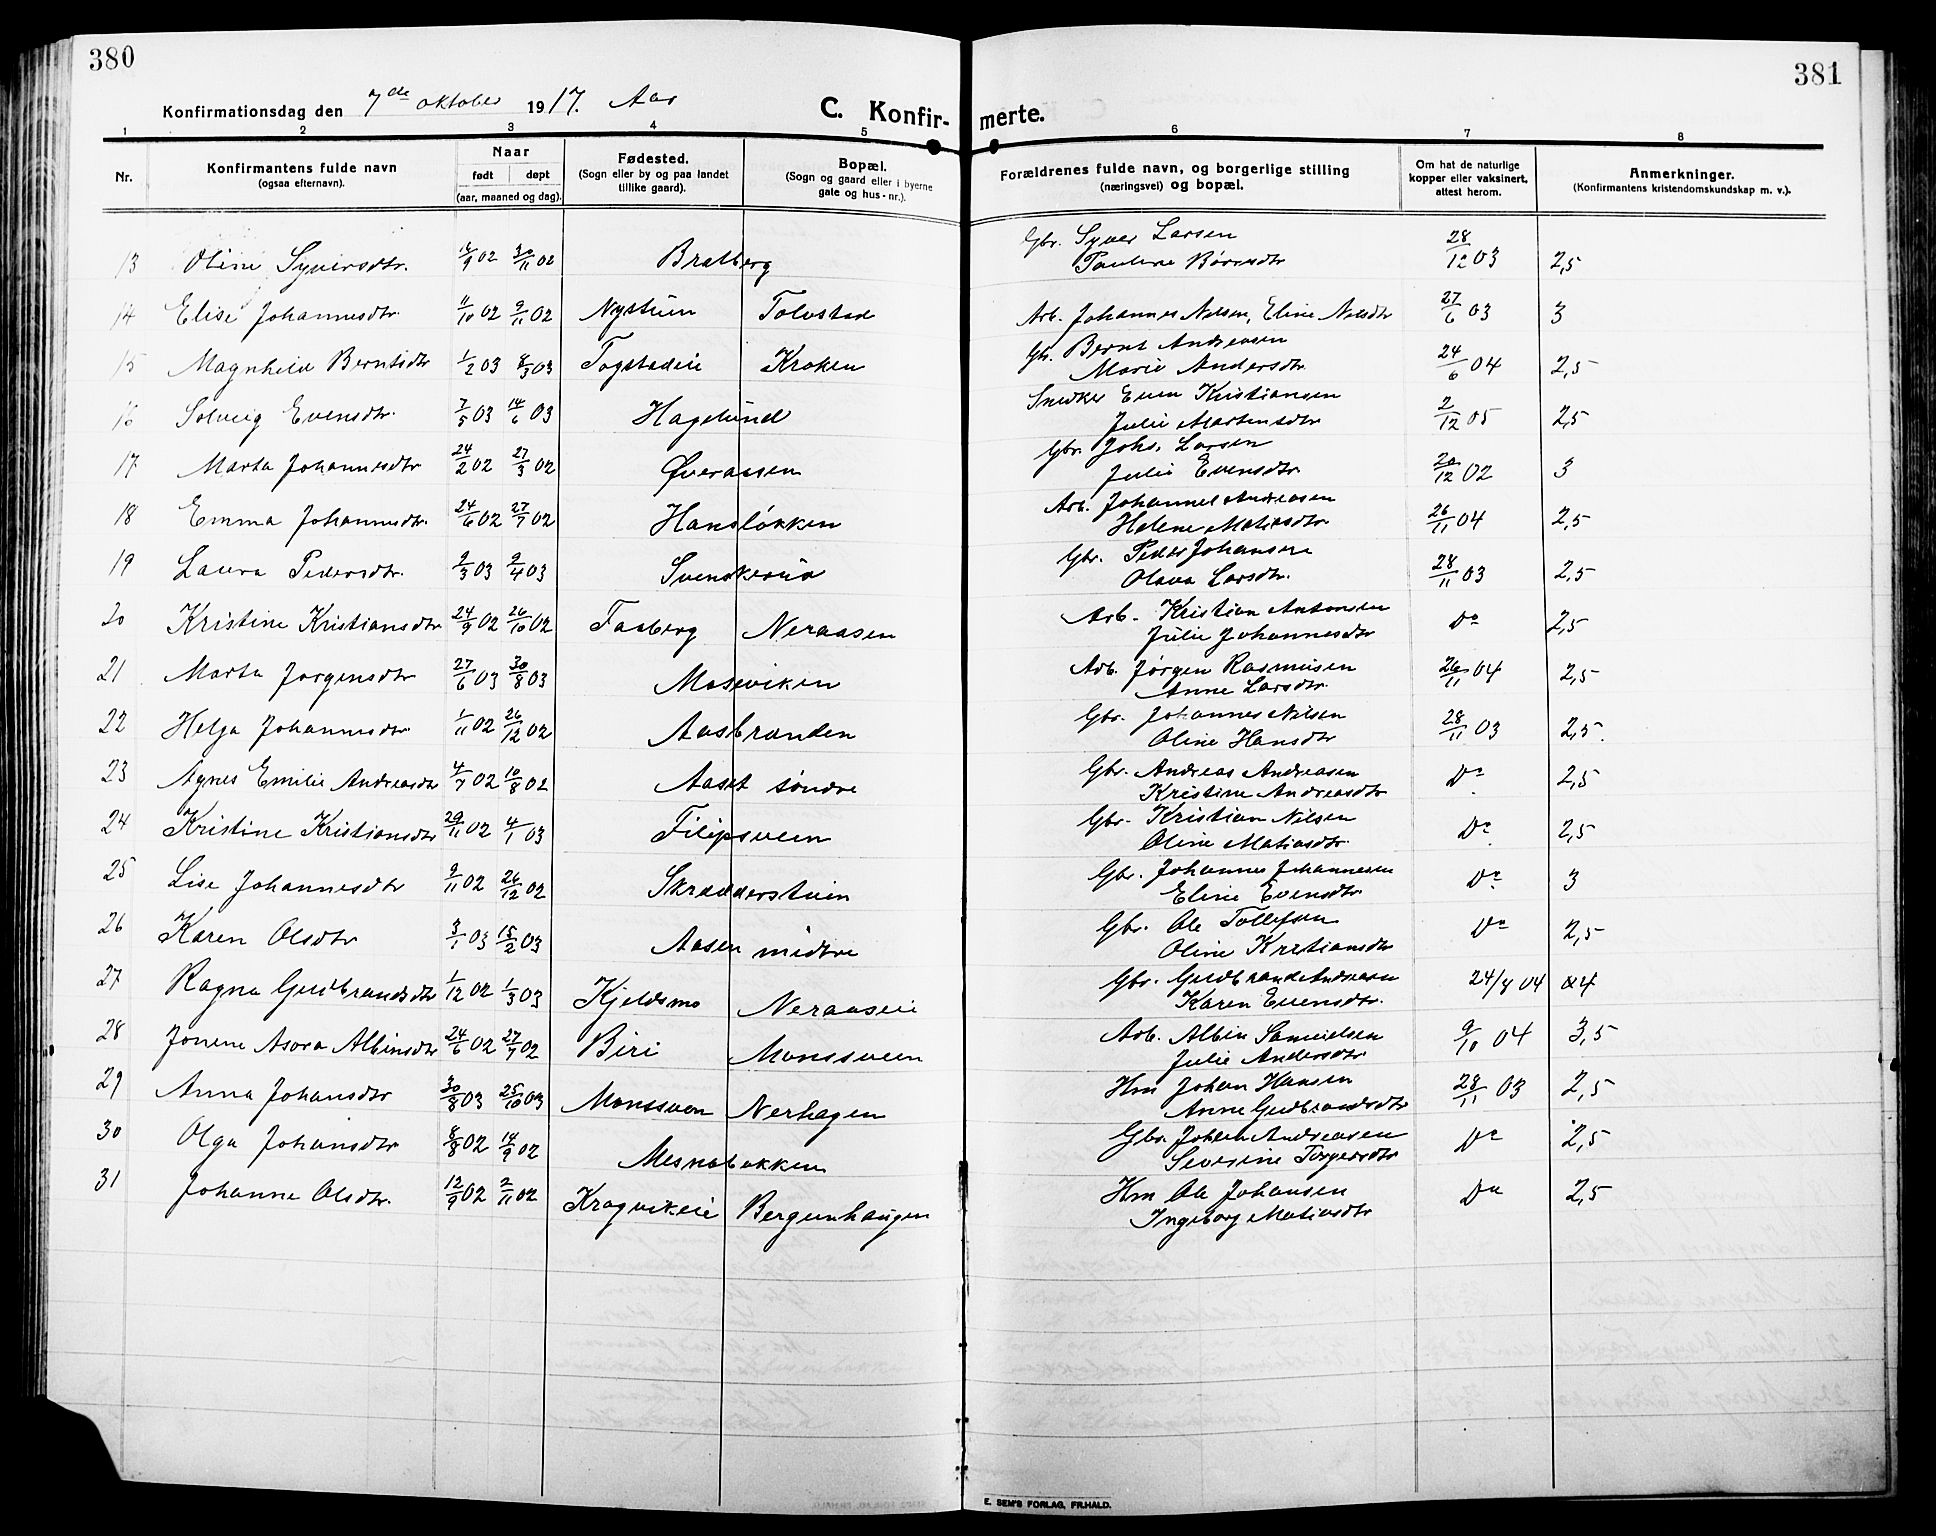 380
Konfirmationsdag den 7de oktober 1917. Aas
C. Konfir-
1 2 3 4 5
Nr. Konfirmantens fulde navn (ogsaa efternavn). Naar født døpt (aar, maaned og dag). Fødested. (Sogn eller by og paa landet tillike gaard). Bopæl. (Sogn og gaard eller i byerne gate og hus-nr.).
13 Oline Syversdtr. 02 30/11 02 Bratberg
14 Elise Johannesdtr 11/10 02 9/11 02 Nystuen Tolvstad
15 Magnhild Berntsdtr 1/2 03 8/3 03 Fogstadeie Kroken
16 Solveig Evensdtr. 7/5 03 14/6 03 Hagelund
17 Marta Johannesdtr 24/2 02 27/3 02 Øveraasen
18 Emma Johannesdtr. 24/6 02 27/7 02 Hansløkken
19 Laura Pedersdtr. 9/3 03 9/4 03 Svenskerud
20 Kristine Kristiansdtr 24/9 02 26/10 02 Faaberg Neraasen
21 Marta Jørgensdtr 27/6 03 30/8 03 Moseviken
22 Helga Johannesdtr 1/11 02 26/12 02 Aasbrenden
23 Agnes Emilie Andreasdtr 4/7 02 10/8 02 Aaset søndre
24 Kristine Kristiansdtr 29/11 02 4/1 03 Filipsveen
25 Lise Johannesdtr 9/11 02 26/12 02 Skrædderstuen
26 Karen Olsdtr 3/1 03 15/2 03 Aasen midtre
27 Ragna Gudbrandsdtr 1/12 02 1/3 03 Kjeldsmo Neraaseie
28 Jonene Asora Albinsdtr 24/6 02 27/7 02 Biri Monssveen
29 Anna Johansdtr 30/8 03 25/10 03 Monssveen Nerhagen
30 Olga Johansdtr 8/8 02 14/9 02 Mesnabakken
31 Johanne Olsdtr. 12/9 02 2/11 02 Kragvikeie Bergunhaugen
381
merte.
6 7 8
Forældrenes fulde navn, og borgerlige stilling (næringsvei) og bopæl. Om hat de naturlige kopper eller vaksinert, attest herom. Anmerkninger. (Konfirmantens kristendomskundskap m. v.).
Gbr. Syver Larsen
Pauline 28/12 03 2,5
Arb. Johannes Nilsen, Eline Nilsdtr 27/6 03 3
Gbr. Bernt Andreasen
Marie Andersdtr. 24/6 04 2,5
Snedker Even Kristiansen
Julie Martinsdtr 2/12 05 2,5
Gbr. Johs. Larsen
Julie Evensdtr. 20/12 02 3
Arb. Johannes Andreasen
Helene Matiasdtr. 26/11 04 2,5
Gbr. Peder Johansen
Olava Larsdtr. 28/11 03 2,5
Arb. Kristian Antonsen
Julie Johannesdtr Do 2,5
Arb. Jørgen Rasmusen
Anne Larsdtr. 26/11 04 2,5
Gbr. Johannes Nilsen
Oline Hansdtr 28/11 03 2,5.
Gbr. Andreas Andreasen
Kristine Andreasdtr Do 2,5
Gbr. Kristian Nilsen
Oline Matiasdtr. Do 2,5
Gbr. Johannes Johannesen
Eline Evensdtr. Do 3
Gbr. Ole Tollefsen
Oline Kristiansdtr Do 2,5
Gbr. Gudbrand Andreasen
Karen Evensdtr. 24/8 04 4
Arb. Albin Samuelsen
Julie Andersdtr 9/10 04 3,5
Hm Johan Hansen
Anne Gudbrandsdtr 28/11 03 2,5
Gbr. Johan Andreasen
Severine Torgersdtr Do 2,5
Hm Ole Johansen
Ingeborg Matiasdtr Do 2,5
E. SEM'S FORLAG, FR.HALD.